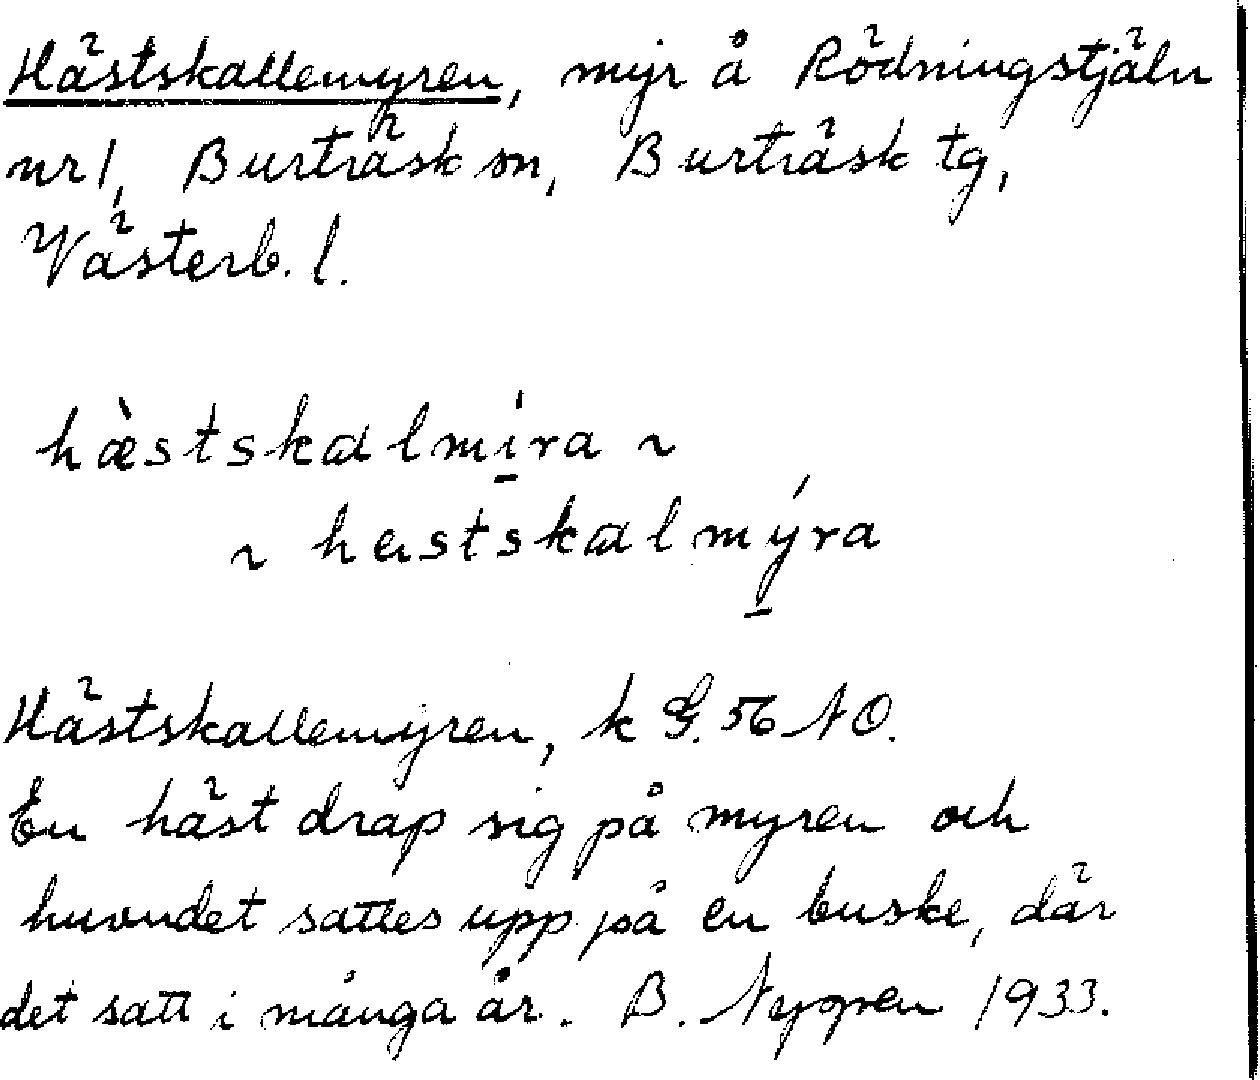 Hästskallemyren, myr å Rödningstjäln
nr 1, Burträsk sn, Burträsk tg,
Västerb. l.
hæ̀stskalmíra ~
~ hastskalmýra
Hästskallemyren, k G. 56 NO.
En häst drap sig på myren och
huvudet sattes upp på en buske, där
det satt i många år. B. Nygren 1933.